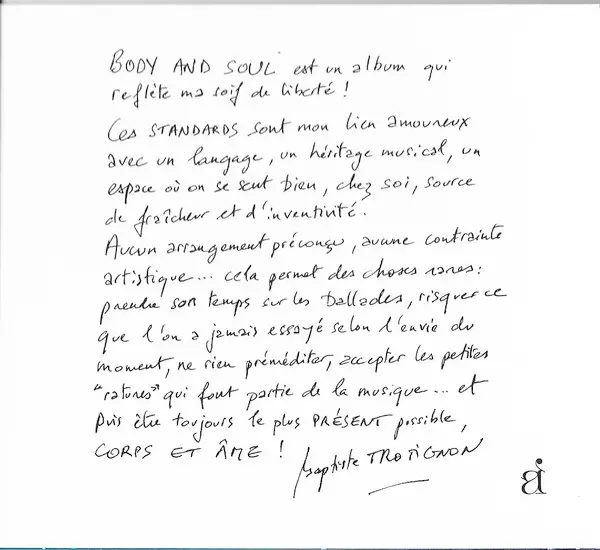 BODY AND SOUL est un album qui
reflète ma soif de liberté !
Ces STANDARDS sont mon lien amoureux
avec un langage, un héritage musical, un
espace où on se sent bien, chez soi, source
de fraîcheur et d'inventivité.
Aucun arrangement préconçu, aucune contrainte
artistique... cela permet des choses rares :
prendre son temps sur les ballades, risquer ce
que l'on a jamais essayé selon l'envie du
moment, ne rien préméditer, accepter les petites
"ratures" qui font partie de la musique... et
puis être toujours le plus PRÉSENT possible,
CORPS ET ÂME !
Baptiste TROTIGNON